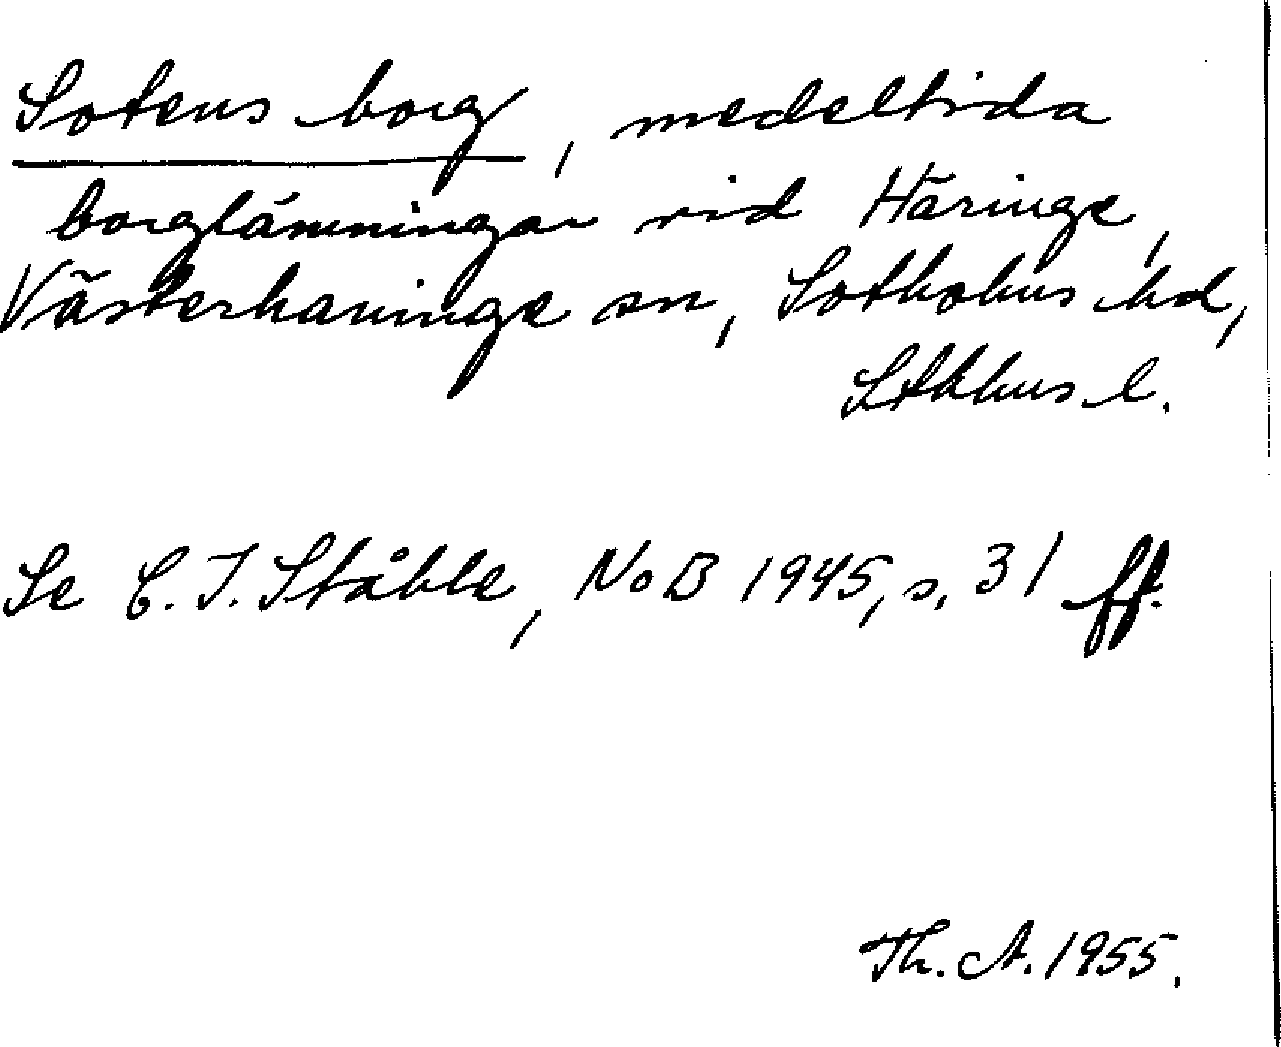 Sotens borg, medeltida
borglämningar vid Häringe,
Västerhaninge sn, Sotholms hd,
Sthlms l.
Se C. I. Ståhle, NoB 1945, s. 31 ff.
Th. A. 1955.